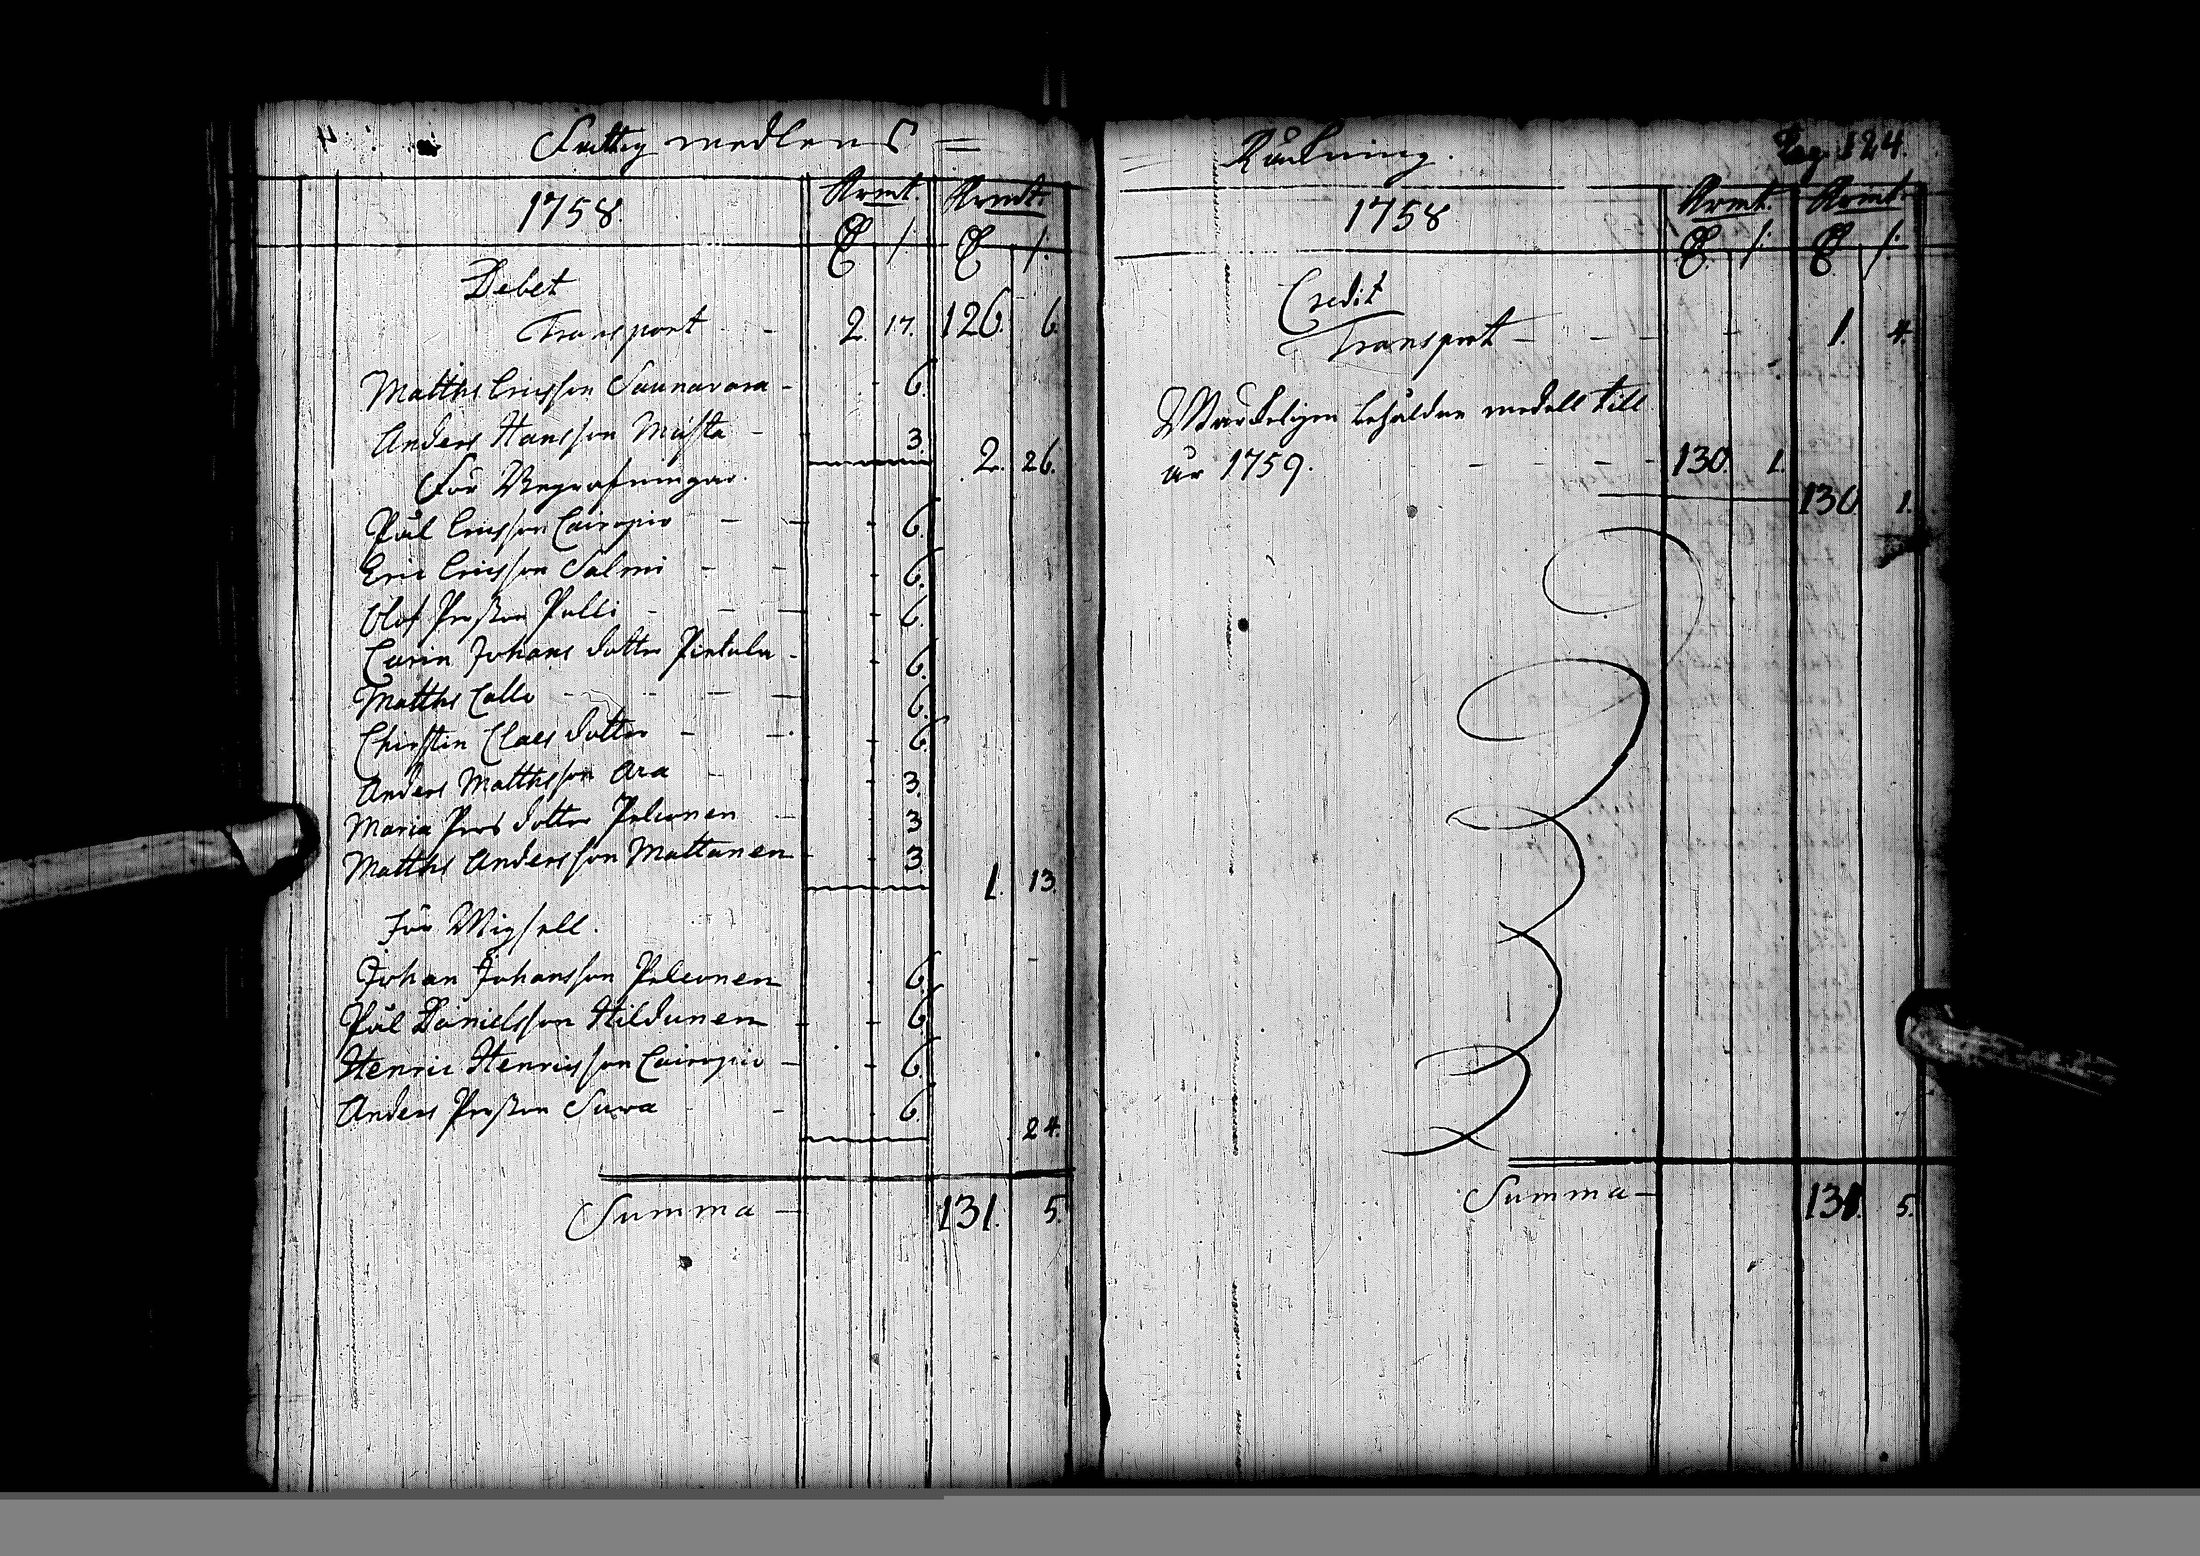 Fattig medlens =
1758.
Krmt. Krmt.
Debet
Transport - 2. 17. 126. 6.
Matths Ericsson Saunavara - - 6.
Anders Hansson Musta - - 3.
2. 26.
För Begrafningar.
Pål Ericsson Cairopio - - - 6.
Eric Ericsson Salmi - - - 6.
Olof Persson Palli - - - 6.
Carin Johans dotter Pietula - - 6.
Matths Callo - - - - 6.
Christin Claes dotter - - - 6.
Anders Matthsson Ara - - 3.
Maria Pers dotter Pelconen - - 3
Matths Andersson Mattanen - - 3.
1. 13.
För Wigsell.
Johan Johansson Pelconen - 6.
Pål Danielsson Hildunen - - 6.
Henric Henricsson Cairopio - - 6.
Anders Persson Suwa - - 6.
24.
Summa - 131. 5.
= Räckning. Pag. 124.
1758
Krmt. Krmt.
Credit
Transport - - - - 1. 4.
behåldne medell till
år 1759. - - - - 130. 1.
130 1.
Summa - 131. 5.